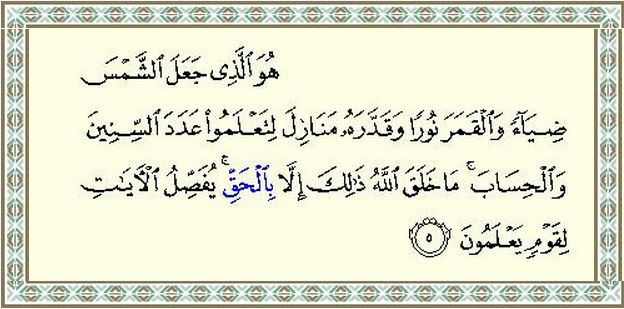 هُوَ ٱلَّذِى جَعَلَ ٱلشَّمْسَ
ضِيَآءً وَٱلْقَمَرَ نُورًا وَقَدَّرَهُۥ مَنَازِلَ لِتَعْلَمُوا۟ عَدَدَ ٱلسِّنِينَ
وَٱلْحِسَابَ ۚ مَا خَلَقَ ٱللَّهُ ذَٰلِكَ إِلَّا بِٱلْحَقِّ ۚ يُفَصِّلُ ٱلْءَايَٰتِ
لِقَوْمٍ يَعْلَمُونَ ٥